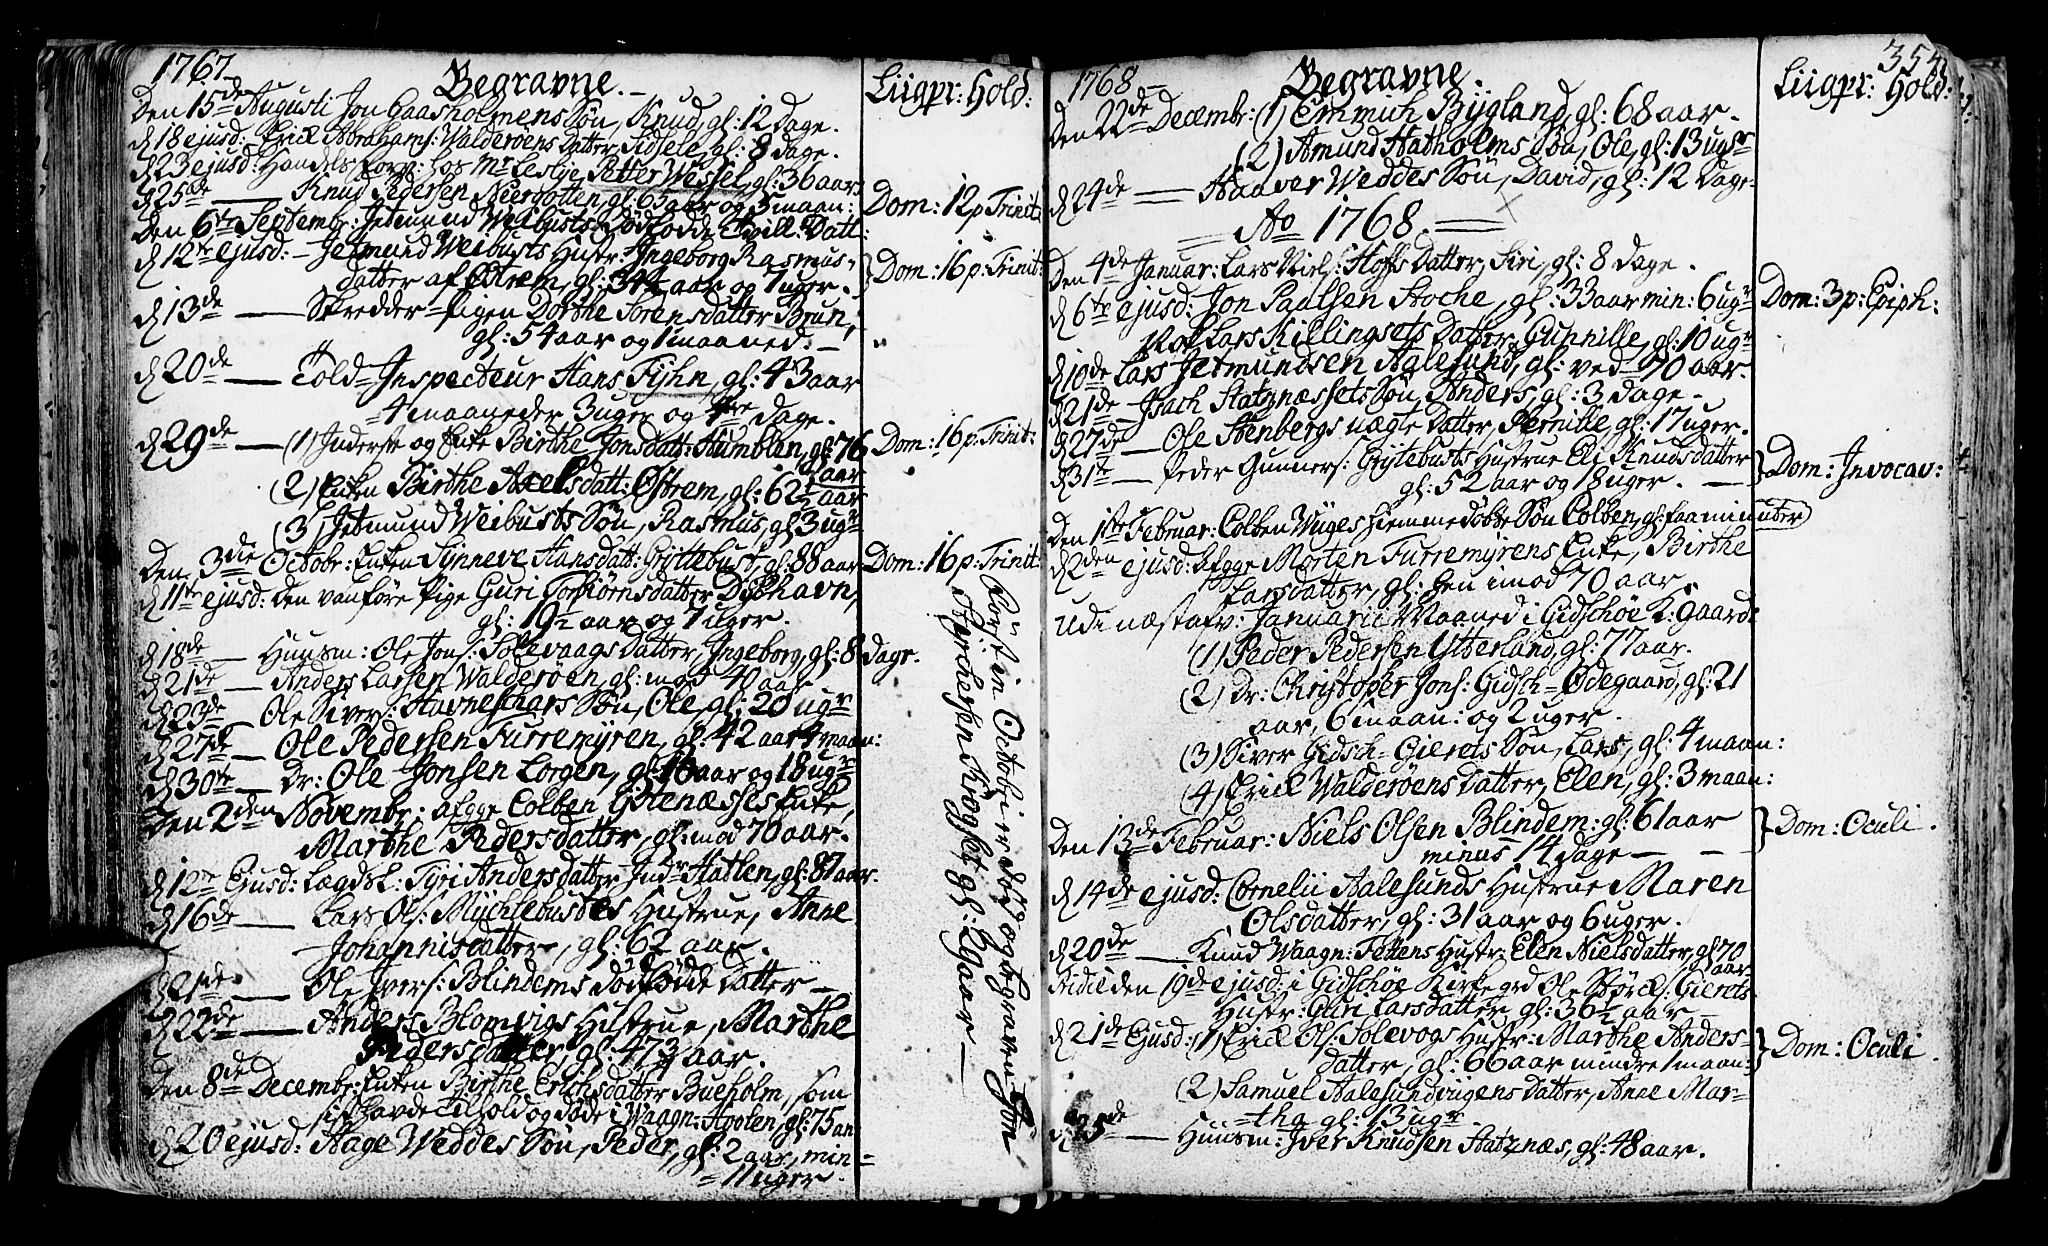 1767
Begravne.
Liigpr: Hold:
Den 15de Augusti Jon Gaasholmens Søn, Knud, gl: 12 Dage.
d 18 ejusd: Erick Abrahams: Walderøens Datter, Sidsele, gl: 8 dage.
d 23 ejusd: Handels hos Mr Leslje, Petter Wessel, gl: 36 aar
d 25de — Knud Pedersen Neergotten, gl: 65 aar og 5 maan:
Dom: 12 p Trinit:
Den 6te Septembr: Jetmund Weibusts dødfødde Tvill: Datt:
d 12te ejusd: – Jetmund Weibusts Hustr: Ingeborg Rasmus-
datter af Østrem, gl: 34½ aar og 1 uger.
Dom: 16 p: Trinit:
d 13de — Skredder-Pigen Dorthe Sorensdatter Brun,
gl: 54 aar og 1 maaned. —
d 20de — Told-Inspecteur Hans Fijhn, gl: 43 aar
4 maaneder 3 uger og dage.
d 29de — (1) Inderste og Enke Birthe Jonsdatt: Humblen, gl: 76
aar
Dom: 16 p: Trinit:
(2) Enken Birthe Axelsdatt: Østrem, gl: 62½ aar
(3) Jetmund Weibusts Søn, Rasmus, gl 3 ugr
Den 3die Octobr: Enken Synneve Hansdatt: Gryttebust, gl: 88 aar
Dom: 16 p: Trinit:
d 11te ejusd: Den vanføre Pige Guri Torbiørnsdatter Dybhavn,
gl: 19½ aar og 7 uger.
d 18de — Huusm: Ole Jons: Solevaags Datter, Ingeborg, gl: 8 dage.
d 21de — Anders Larsen Walderøen, gl: mod 40 aar
d 23de — Ole Sivers: Søn, Ole, gl: 20 ugr
d 27de — Ole Pedersen Furremyren, gl: 42 aar 4 maan:
d 30te — Dr: Ole Jonsen Lorgen, gl: 16 aar og 18 ugr
Den 2den Novembr: afgge Colben Godtenæsses Enke,
Marthe Pedersdatter, gl: mod 70 aar.
d 12te Ejusd: Lagdsl: Syri Andersdatter Indr Hatlen, gl: 87 aar.
d 16de — Lars Ols: Mychlebusts Hustrue, Anne
Johannisdatter, gl: 62 aar.
d 21de — Ole Ivers: Blindems dødfødde Datter —
d 22de — Anders Blomvigs Hustrue, Marthe
Pedersdatter, gl: 47¾ aar.
Den 8de Decembr: Enken Birthe Erichsdatter Bueholm, som
havde Tilhold og døde i Waagn: gl: 75 aar
d 20 ejusd: Aage Weddes Søn, Peder, gl: 2 aar, min-
11 uger.
Først in Octobr er død og begraven Jon
Krogset, gl: 29 aar —
1768
Begravne.
Liigpr: Hold:
354
Den 22de Decembr: (1) Emmich Bygland, gl: 68 aar.
(2) Amund Hatholms Søn, Ole, gl: 13 ugr
d 24de — Haaver Weddes Søn, David, gl: 12 Dage.
Ao 1768.
Den 4de Januar: Lars Niels: Hoffs Datter, Siri, gl: 8 dage.
d 6te ejusd: Jon Paulsen Stoche, gl: 33 aar min: 6 ugr
Dom: 3 p: Epiph:
Lars Killingsets Datter, Gunnille, gl: 10 ugr
d 10de Lars Jetmundsen Aalesund, gl: ved 70 aar.
d 21de — Isach Slatznæssets Søn, Anders, gl: 3 dage.
d 27de — Ole Stenbergs ægte Datter, Pernille, gl: 17 uger.
d 31te — Peder Gunners: Gryttebusts Hustrue Eli Knudsdatter
gl: 52 aar og 18 uger. —
Dom: Invocav:
Den 1ste Februar: Colben Wiiges hiemmedøbte Søn Colben, gl: faa minuter
d 2den ejusd: Afgge Morten Furremyrens Enke, Birthe
Larsdatter, gl: hen imod 70 aar.
Udi næstafv: Januarii Maaned i Gidschøe K: Gaard:
(1) Peder Pedersen Ytterland, gl: 77 aar.
(2) Dr: Christopher Jons: Gidsch-Ødegaard, gl: 21
aar, 6 maan: og 2 uger.
(3) Siver Gidsch-Gierets Søn, Lars, gl: 4 maan:
(4) Erick Walderøens Datter, Elen, gl: 3 maan:
Den 13de Februar: Niels Olsen Blindem: gl: 61 aar
minus 14 dage —
Dom: Oculi.
d 14de ejusd: Cornelii Aalesunds Hustrue Maren
Olsdatter, gl: 31 aar og 6 uger.
d 20de — Knud Waagn: Fettens Hustr: Elen Nielsdatter, gl 70
aar
den 19de ejusd: i Gidschøe Kirkegrd Ole Størcks: Gierets
Hustr: Guri Larsdatter, gl: 36½ aar —
d 21de Ejusd: (1) Erick Ols: Solevogs Hustr: Marthe Anders-
datter, gl: 66 aar mindre 1 maan:
Dom: Oculi.
(2) Samuel Aalesundvugens Datter, Anne Mar-
tha gl: 13 ugr.
d 25de — Huusm: Iver Knudsen Slatznæs, gl: 48 aar.